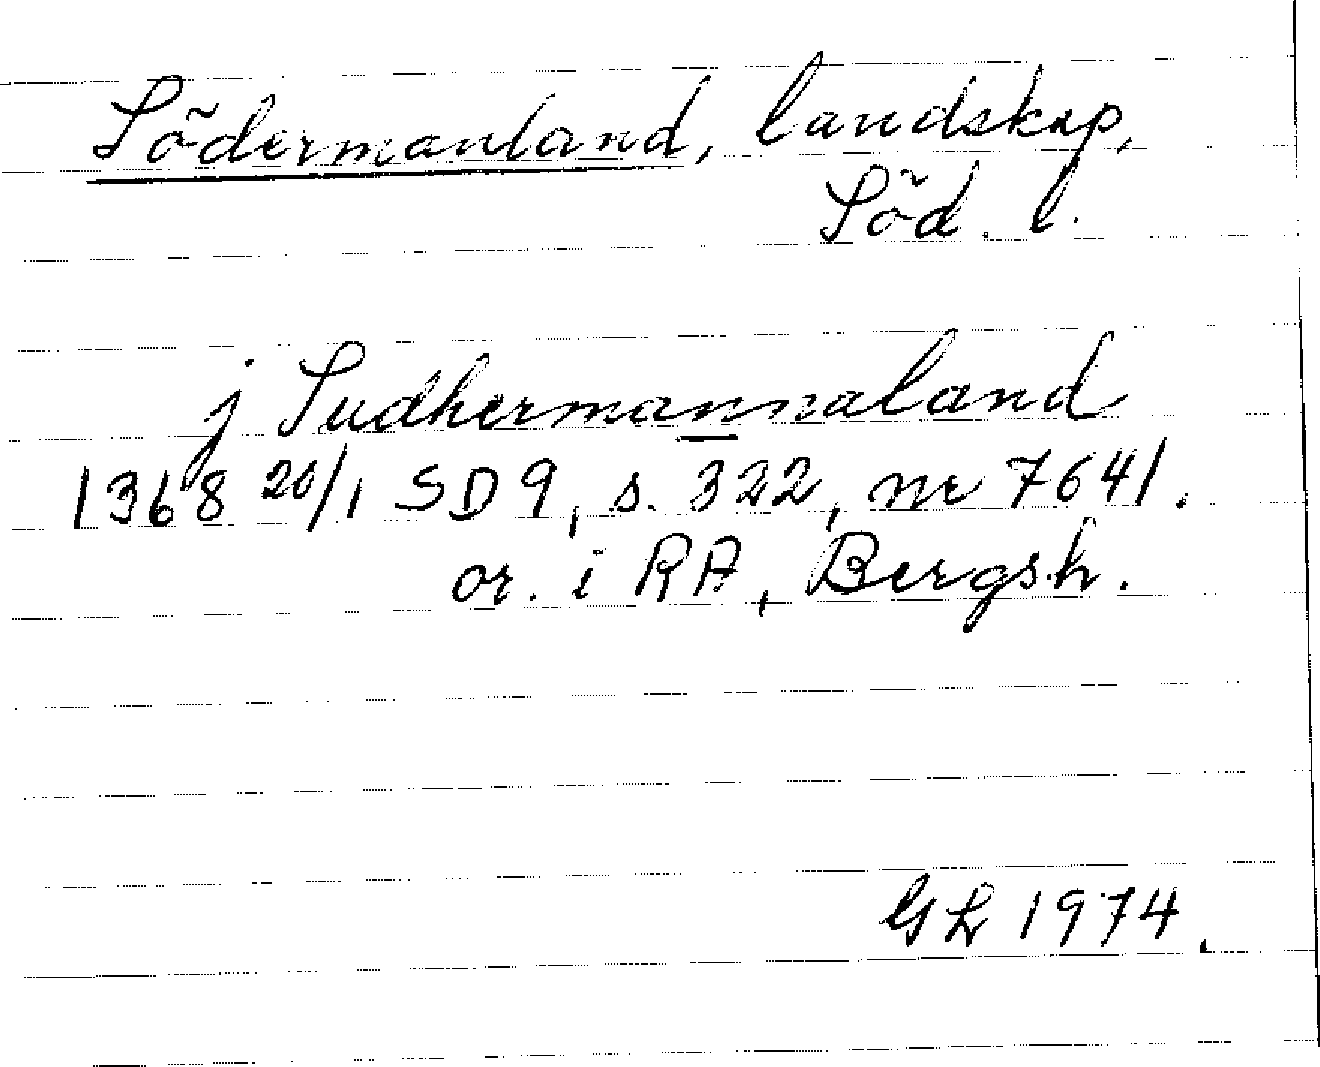 Södermanland, landskap,
Söd. l.
j Sudhermannaland
1368 20/1 SD 9, s. 322, nr 7641.
or. i RA, Bergsh.
GL 1974.